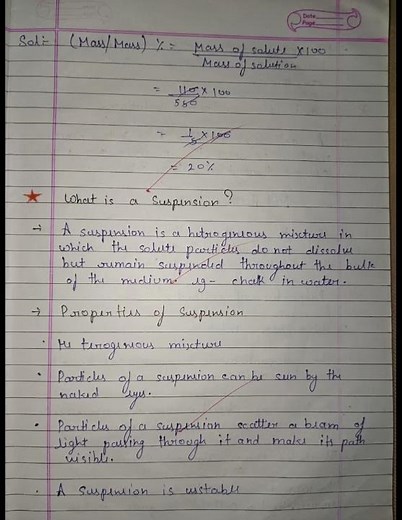 Date
Page
Sol:- (Mass/Mass) % = Mass of solute × 100
Mass of solution
= 110 × 100
550
= 1 × 100
5
= 20%
★ What is a Suspension?
→ A suspension is a hetrogenious mixture in
which the solute particles do not dissolve
but remain suspended throughout the bulk
of the medium. eg- chalk in water.
→ Properties of Suspension
• Heterogenious mixture
• Particles of a suspension can be seen by the
naked eyes.
• Particles of a suspension scatter a beam of
light passing through it and make its path
visible.
• A suspension is unstable